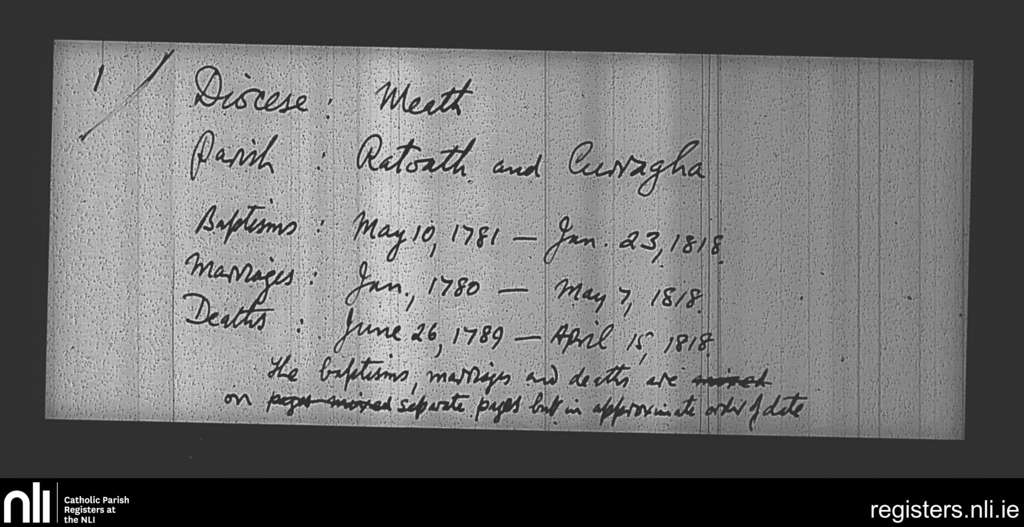 1
Diocese : Meath
Parish : Ratoath and Curragha
Baptisms : May 10, 1781 — Jan. 23, 1818.
Marriages : Jan., 1780 — May 7, 1818.
Deaths : June 26, 1789 — April 15, 1818.
The baptisms, marriages and deaths are mixed
on pages mixed separate pages but in approximate order of date
nli
Catholic Parish
Registers at
the NLI
registers.nli.ie